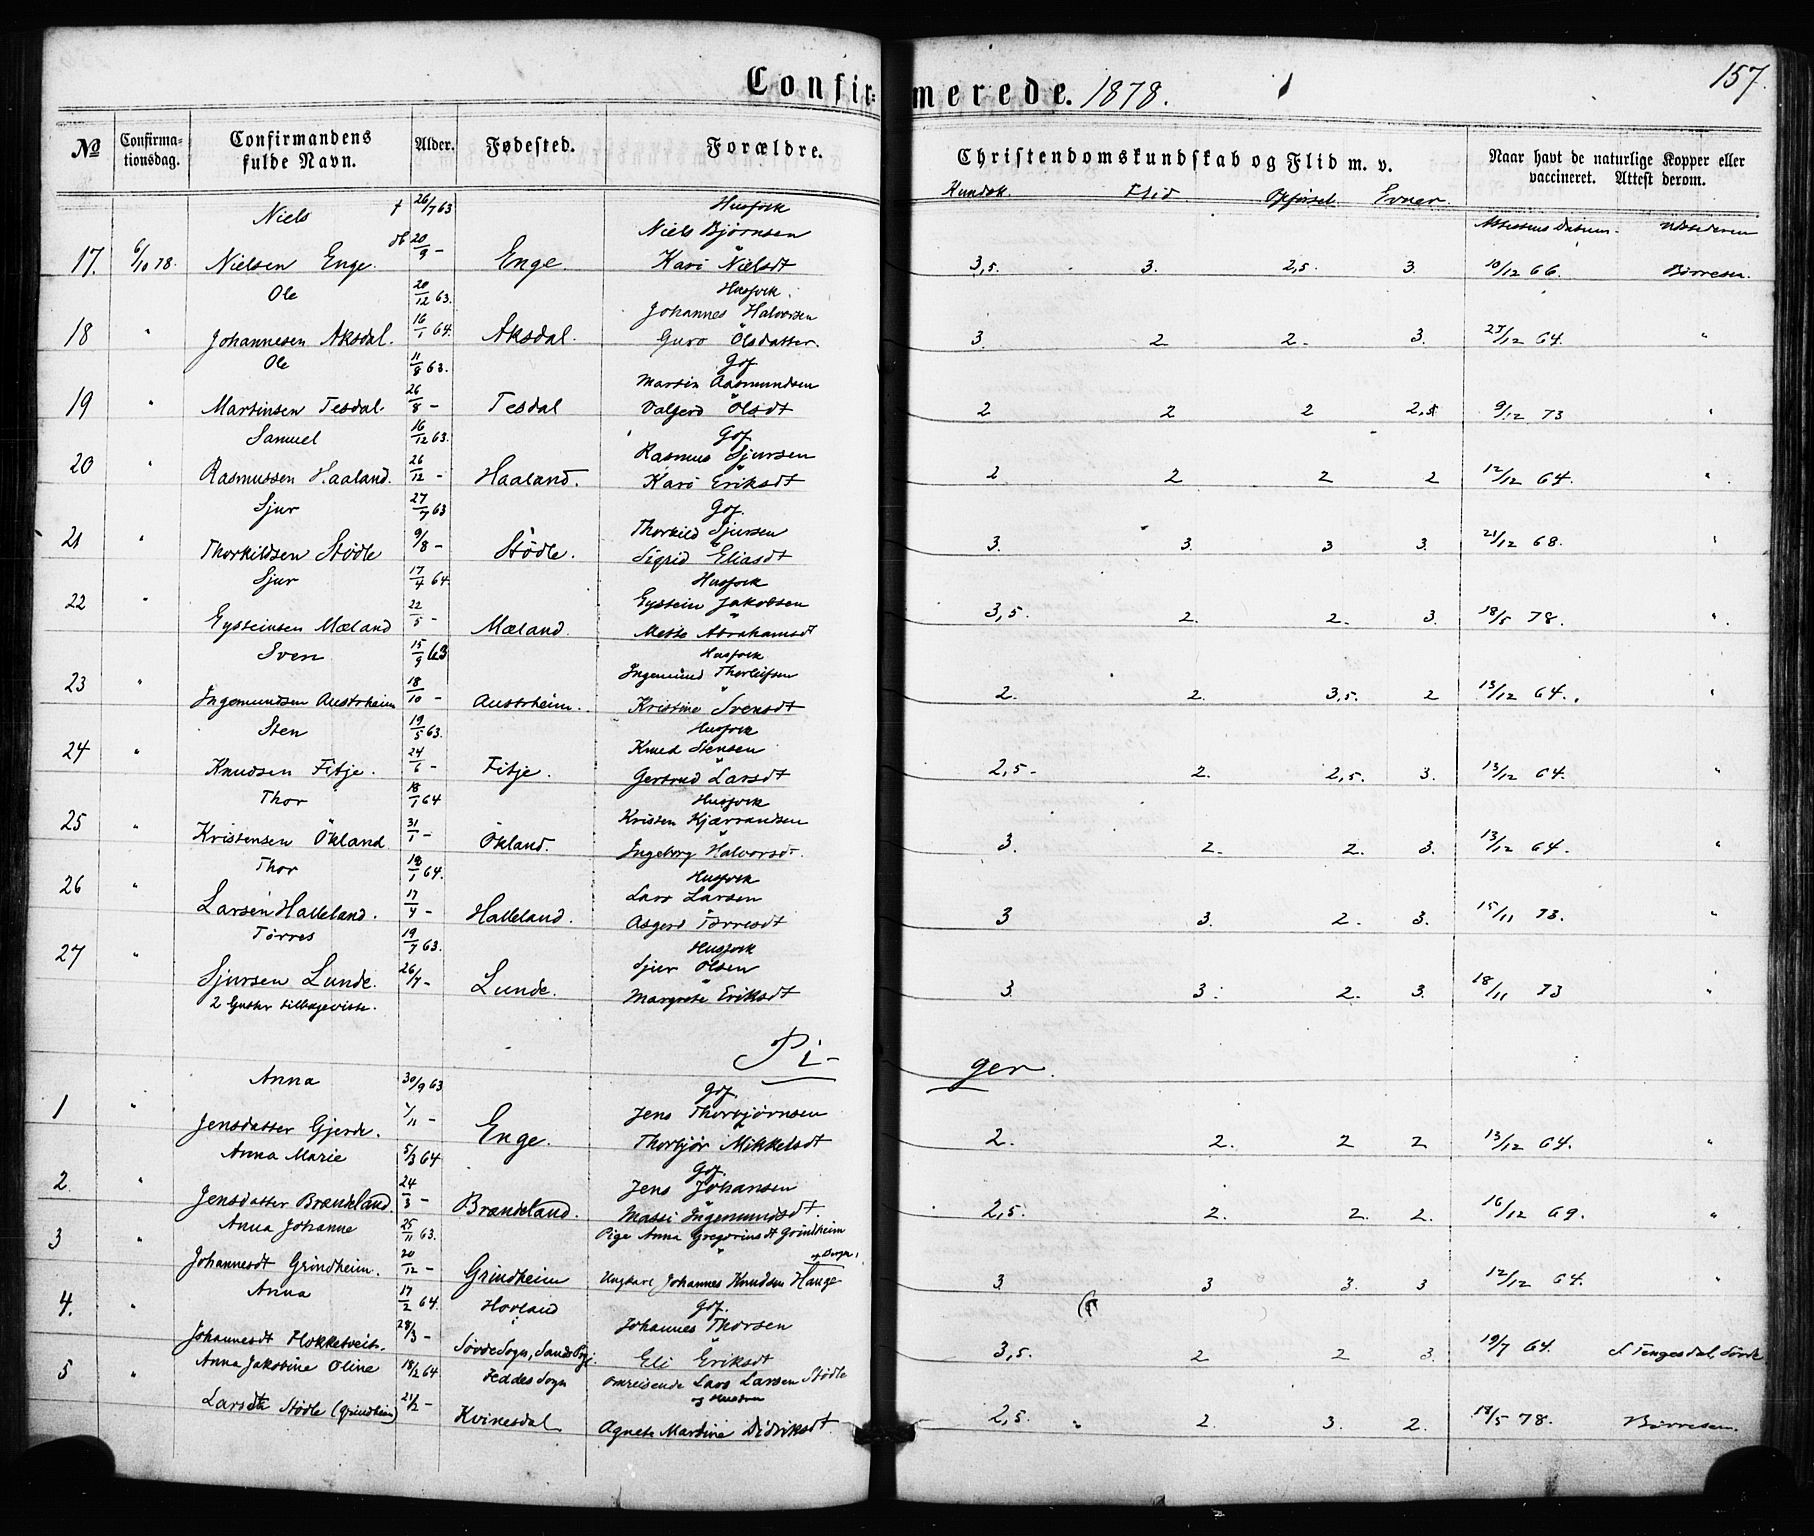 157.
Confir- merede. 1878.
No Confirma-tionsdag. Confirmandens fulde Navn. Alder. Fødested. Forældre. Christendomskundskab og Flid m. v. Naar havt de naturlige Kopper eller vaccineret. Attest derom.
Kundsk. Flid Opførsel Evner
Attestens Datum. Udstederen
Niels † 26/7 63 Husfolk
Niels Bjørnsen
17. 6/10 78. Nielsen Enge. db 20/9 - Enge. Kari Nielsdt 3,5. 3. 2,5. 3. 10/12 66. Børresen.
Ole 20/12 63. Husfolk.
Johannes Halvorsen
18 " Johannesen Aksdal. 16/1 64. Aksdal. Guro Olsdatter. 3. 2 2. 3. 27/12 64. "
Ole 11/8 63. Gof
Martin Aasmundsen
19 " Martinsen Tesdal. 26/8 - Tesdal Valgerd Olsdt 2 2 2 2,5 9/12 73 "
Samuel 16/12 63. Gof
Rasmus Sjursen
20 " Rasmussen Haaland. 26/12 - Haaland. Kari Eriksdt 2 2 2 2 12/12 64. "
Sjur 27/7 63 Gof.
Thorkild Sjursen
21 " Thorkildsen Stødle 9/8 - Stødle. Sigrid Eliasdt 3. 3. 3 3. 21/12 68. "
Sjur 17/4 64. Husfolk
Eystein Jakobsen
22 " Eysteinsen Mæland 22/5 - Mæland. Mette Abrahamsdt 3,5. 2. 2. 3. 18/5 78. "
Sven 15/9 63 Husfolk
Ingemund Thorleifsen
23 " Ingemundsen Austrheim 18/10 - Austrheim. Kristine Svensdt 2. 2. 3,5. 2 13/12 64. "
Sten 19/5 63. Husfolk
Knud Stensen
24 " Knudsen Fitje. 24/6 - Fitje. Gertrud Larsdt 2,5. 2. 2,5. 3. 13/12 64. "
Thor 18/1 64 Husfolk
Kristen Kjærrandsen
25 " Kristensen Økland 31/1 - Økland. Ingeborg Halvorsdt. 3. 2. 2. 3. 13/12 64. "
Thor 18/1 64. Husfolk
Lars Larsen
26 " Larsen Halleland. 17/4 - Halleland. Asgerd Tørresdt 3 3. 2. 3. 15/11 73. "
Tørres 19/7 63. Husfolk
Sjur Olsen
27 " Sjursen Lunde. 26/7 - Lunde. Margrete Eriksdt 3 3. 2. 3. 18/11 73 "
2 Gutter tilbageviste.
Pi- ger.
Anna 30/9 63 Gof.
Jens Thorbjørnsen
1 " Jensdatter Gjerde. /11 - Enge. Thorbjør Mikkelsdt 2. 2. 2 2 13/12 64. "
Anna Marie 5/3 64 Gof.
Jens Johansen
2 " Jensdatter Brændeland. 24/3 - Brændeland. Massi Ingemundsdt. 2,5. 2. 2. 2. 16/12 69. "
Anna Johanne 25/11 63. Pige Anna Gregoriusdt Grindheim
3 " Johannesdt Grindheim. 20/12 - Grindheim Ungkarl Johannes Knudsen Hauge 3. 3 3. 3 12/12 64. "
Anna 17/2 64. Hovland Gof.
Johannes Thorsen
4. " Johannesdt Flokketveit. 28/3 - Søvde Sogn, Sands Pgj. Eli Eriksdt 3,5. 2 2 3. 19/7 64. S Tengesdal, Søvde
Anna Jakobine Oline 18/2 64 Feddes Sogn omreisende Lars Larsen Stødle
og Hustru
5 " Larsdt Stødle (Grindheim) 21/2 - Kvinesdal Agnete Martine Didriksdt. 2,5. " 2. 3. 2. 18/5 78. Børresen.